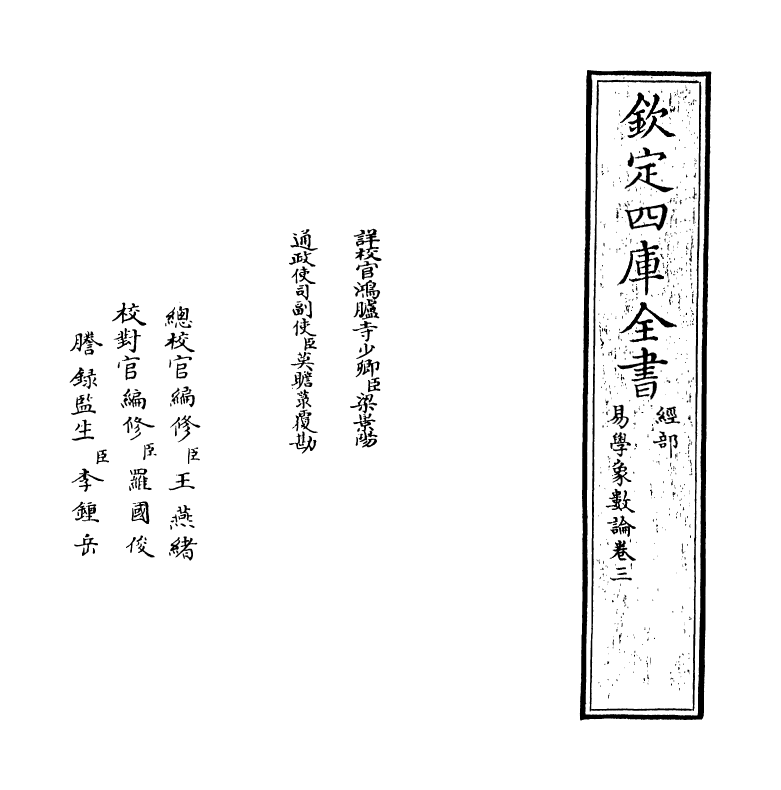 欽定四庫全書
經部
易學象數論卷三
詳校官鴻臚寺少卿臣梁景陽
通政使司副使臣莫瞻菉覆勘
總校官編修臣王燕緒
校對官編修臣羅國俊
謄録監生臣李鍾岳